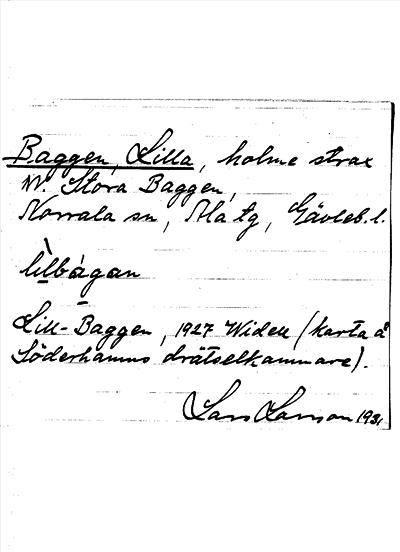 Baggen, Lilla, holme strax
N. Stora Baggen,
Norrala sn, Ala tg, Gävleb. l.
lìlbágan
Lill-Baggen, 1927 Widell (karta å
Söderhamns drätselkammare).
Lars Larsson 1931